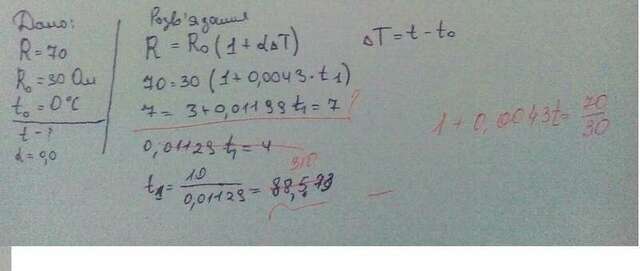 Дано:
R = 70
R₀ = 30 Ом
t₀ = 0°C
t - ?
α = 0,0
Розв'язання
R = R₀ (1 + αΔT)
ΔT = t - t₀
70 = 30 (1 + 0,0043 · t₁)
7 = 3 + 0,01199 t₁ = 7 ?
0,01129 t₁ = 4
310
t₁ = 10 / 0,01129 = 88,573
1 + 0,0043t = 70/30